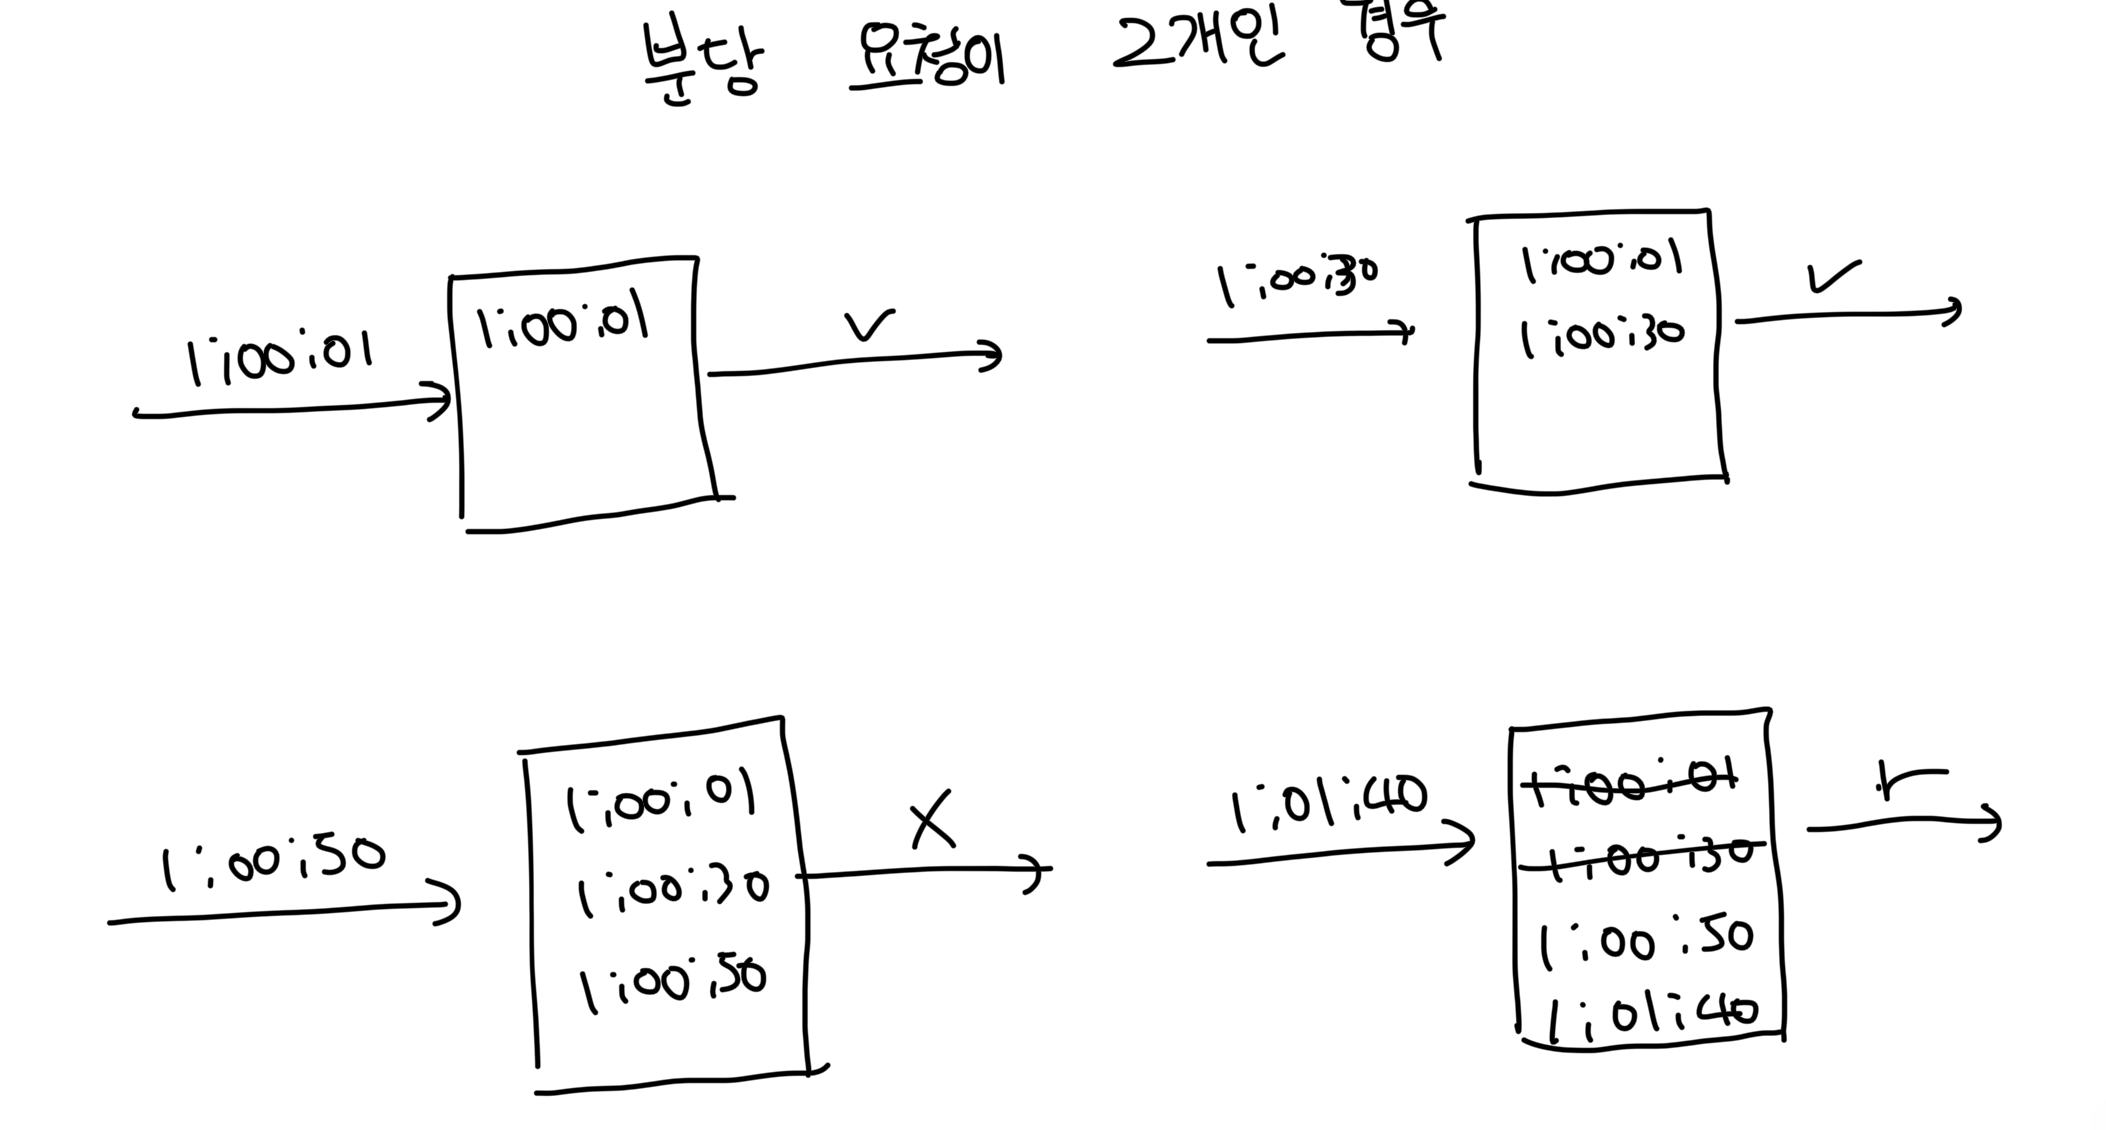 분당 요청이 2개인 경우
1:00:01
1:00:01
1:00:30
1:00:01
1:00:30
1:00:50
1:00:01
1:00:30
1:00:50
X
1:01:40
1:00:01
1:00:30
1:00:50
1:01:40